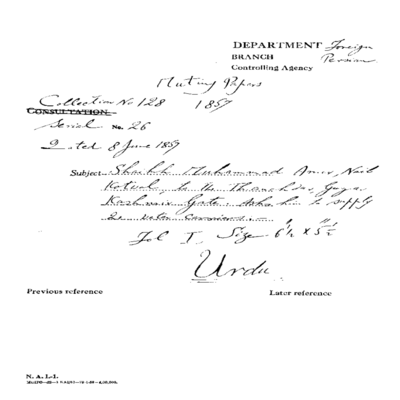 DEPARTMENT Foreign
BRANCH Persian
Controlling Agency
Mutiny Papers
Collection No 128 1857
CONSULTATION.
Serial No. 26
Dated 8 June 1857
Subject Shaikh Muhammad Amir, Naib
Kotwal, to the Thanedar, Guzar
Kashmir Gate. Asks him to supply
water carriers.
Fol I, Size 6½ x 5½
Urdu
Previous reference
Later reference
N. A. I.-1.